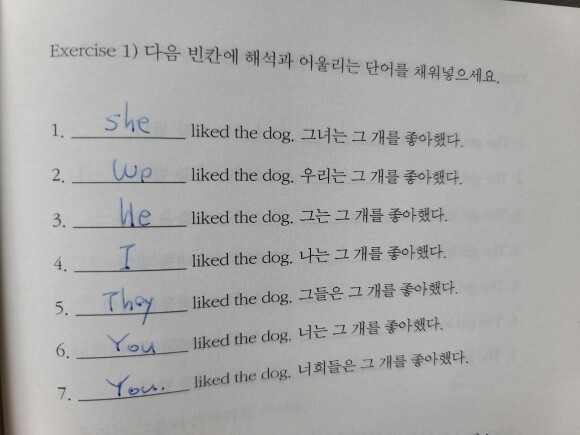 Exercise 1) 다음 빈칸에 해석과 어울리는 단어를 채워넣으세요.
1. she liked the dog. 그녀는 그 개를 좋아했다.
2. We liked the dog. 우리는 그 개를 좋아했다.
3. He liked the dog. 그는 그 개를 좋아했다.
4. I liked the dog. 나는 그 개를 좋아했다.
5. They liked the dog. 그들은 그 개를 좋아했다.
6. You liked the dog. 너는 그 개를 좋아했다.
7. You. liked the dog. 너희들은 그 개를 좋아했다.